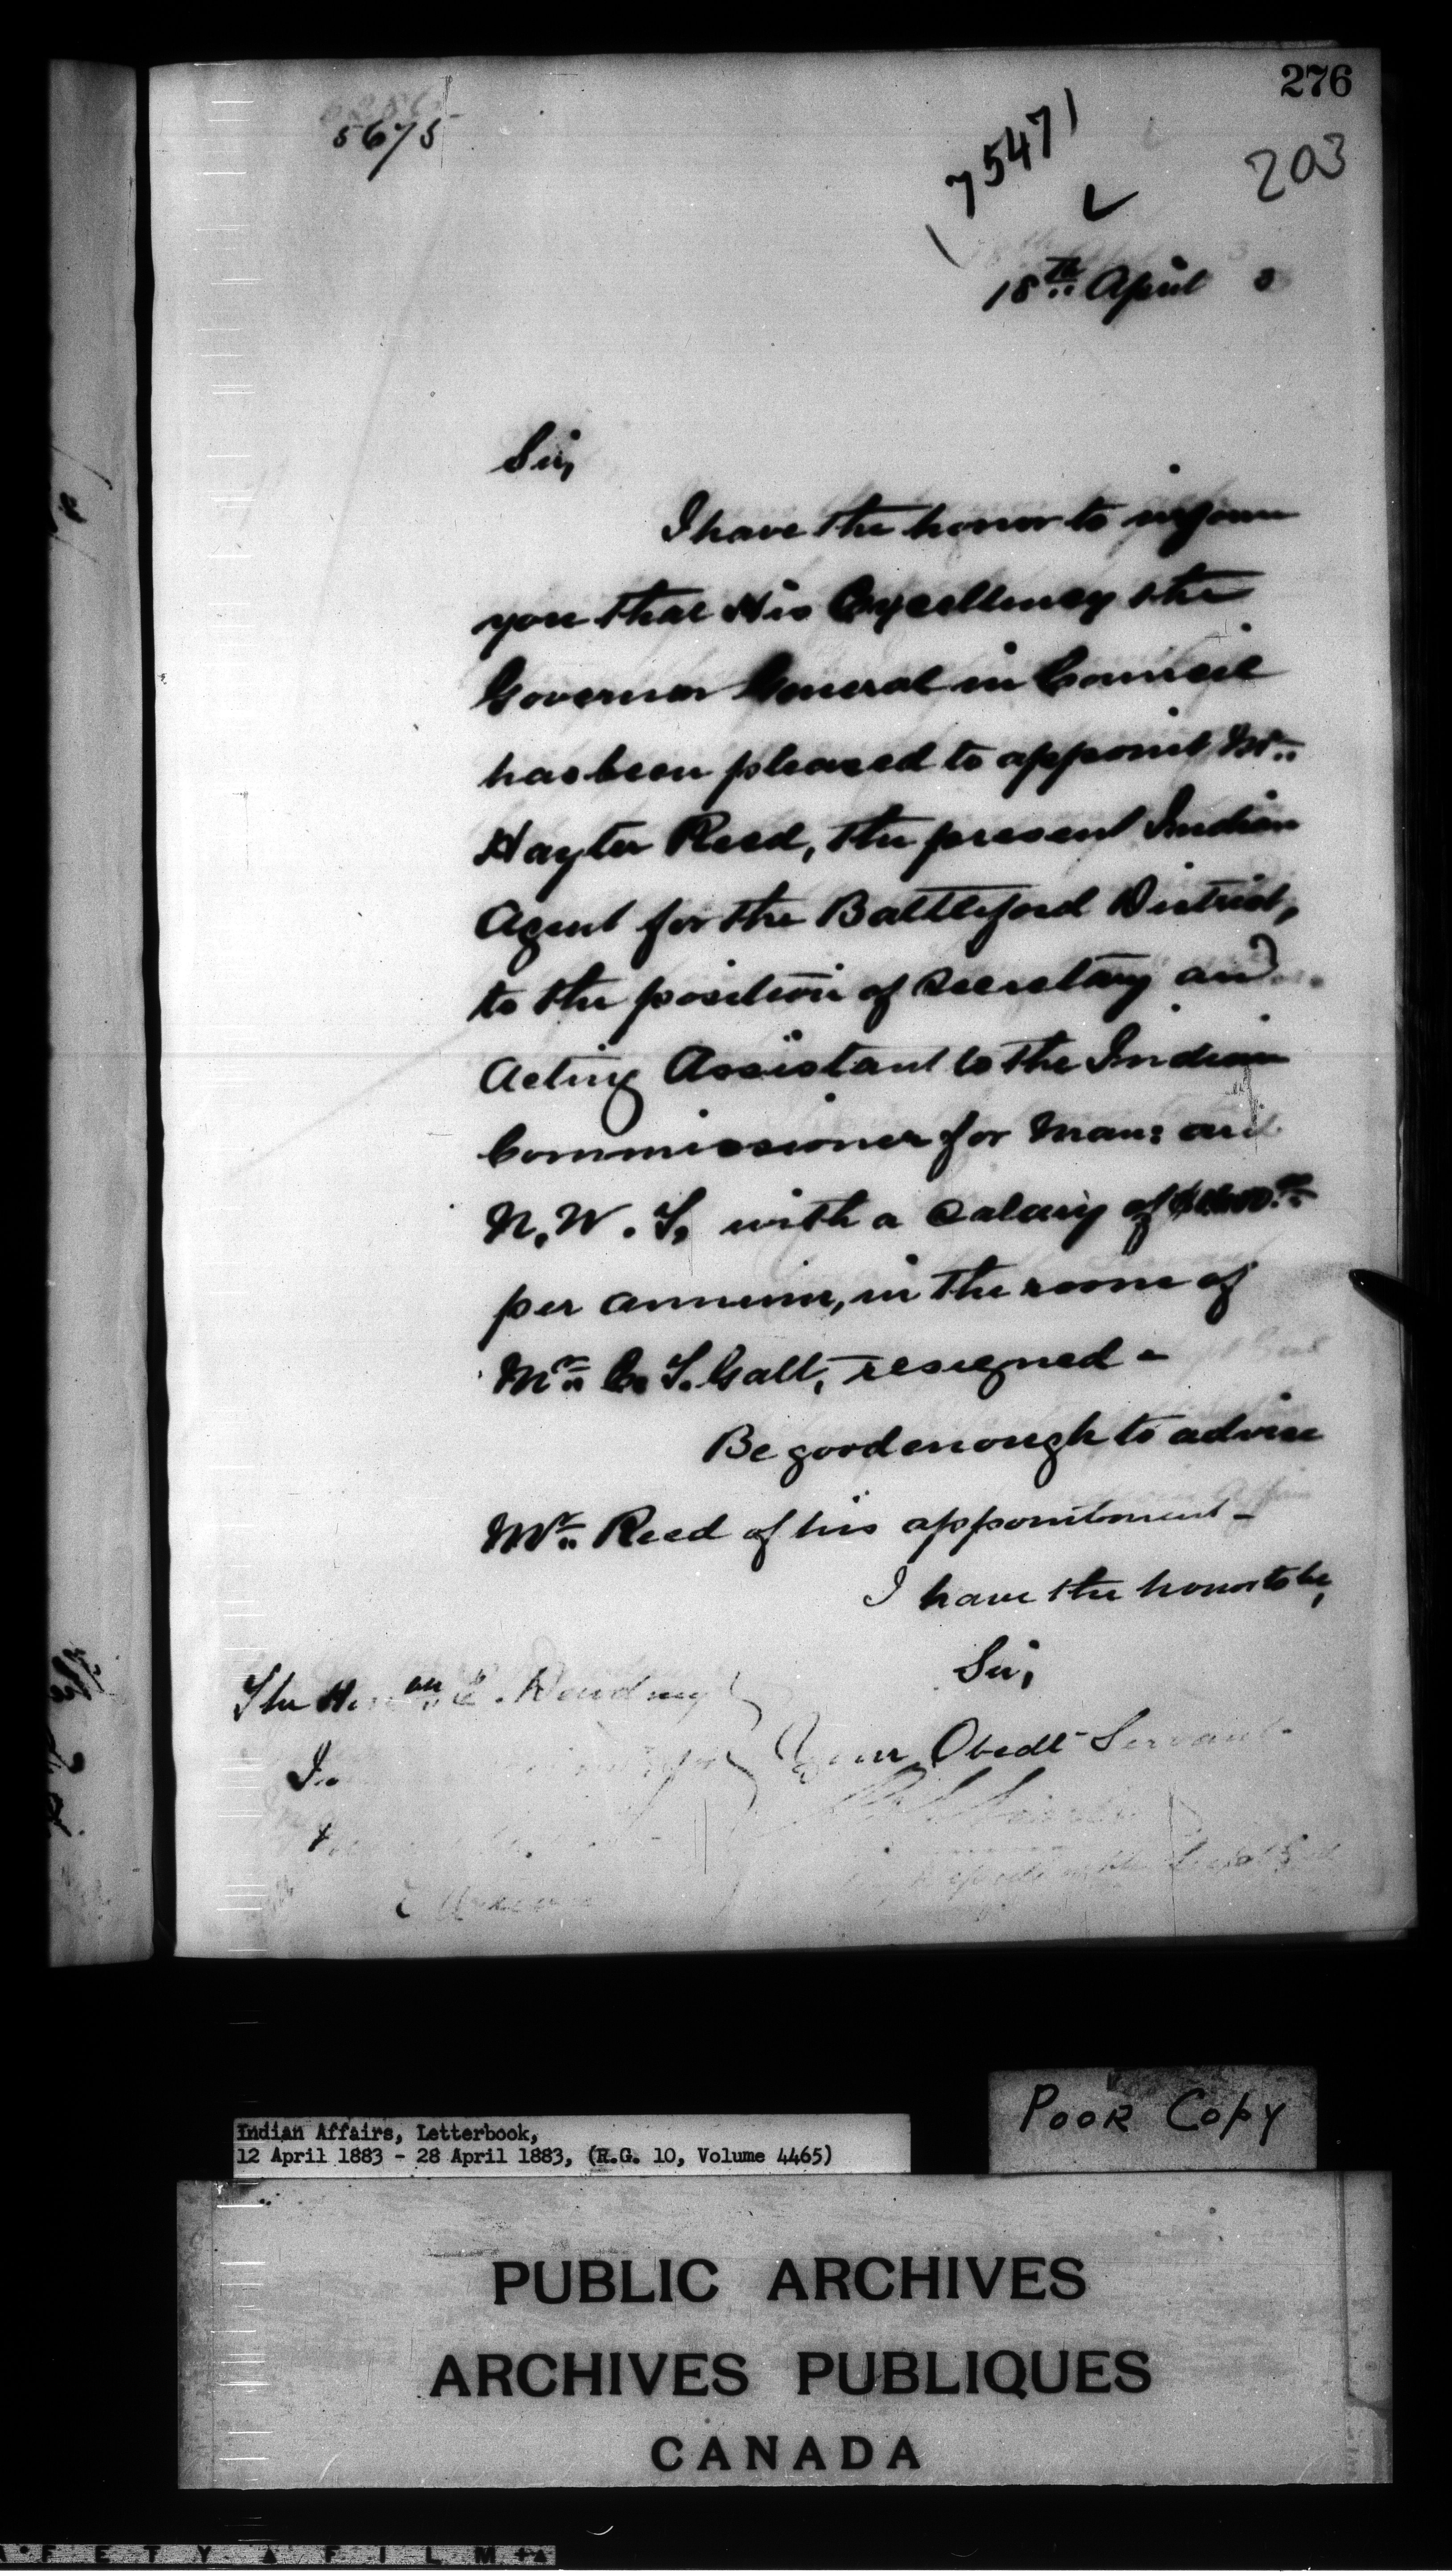 276
5675
75471
203
18th April 3
Sir,
I have the honor to inform
you that His Excellency the
Governor General in Council
has been pleased to appoint Mr.
Hayter Reed, the present Indian
Agent for the Battleford District,
to the position of Secretary and
Acting Assistant to the Indian
Commissioner for Man: and
N.W.T, with a salary of
per annum, in the room of
Mr. C. T. Galt, resigned -
Be good enough to advise
Mr. Reed of his appointment -
I have the honor to be,
Sir,
The Hon E. Dewdney
Your Obedt Servant
Poor Copy
Indian Affairs, Letterbook,
12 April 1883 - 28 April 1883, (R.G. 10, Volume 4465)
PUBLIC ARCHIVES
ARCHIVES PUBLIQUES
CANADA
AFETY FILM